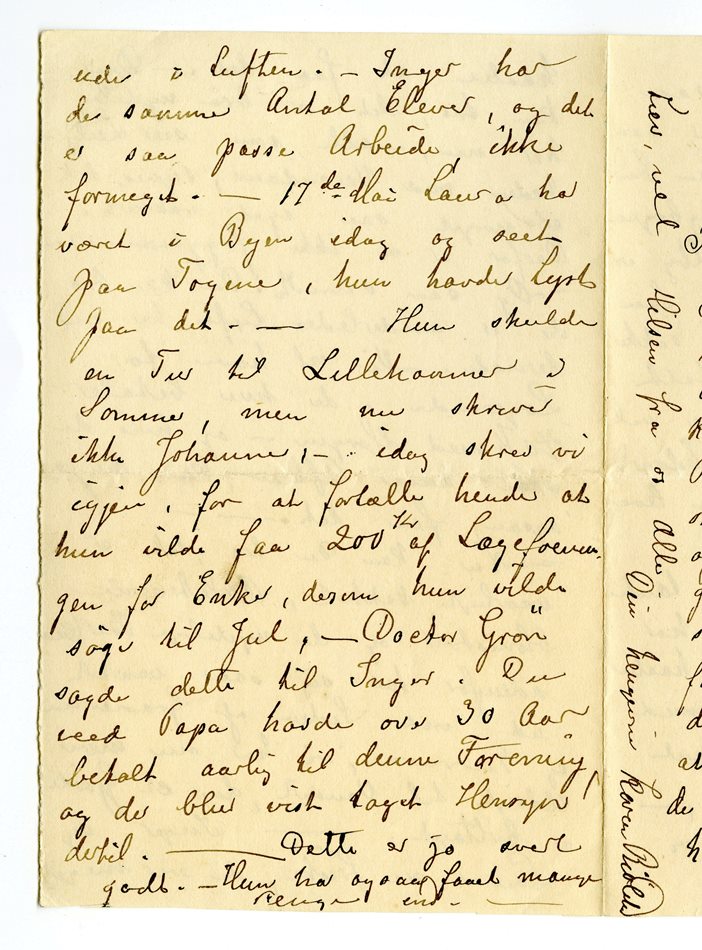 ude i Luften. — Inger har
de samme Antal Elever, og det
er saa passe Arbeide, ikke
formeget. — 17de Mai Laura ha
været i Byen idag og seet
paa Togene, hun havde Lyst
paa det. — Hun skulde
en Tur til Lillehammer i
Sommer, men nu skriver
ikke Johanne, — idag skrev vi
igjen, for at fortælle hende at
hun vilde faa 200 Kr af Lægeforenin-
gen for Enker, dersom hun vilde
søge til Jul, — Doctor Grøn
sagde dette til Inger. Du
veed Papa havde over 30 Aar
betalt aarlig til denne Forening,
og der blir vist taget Hensyn
dertil. — Dette er jo svert
godt. — Hun har ogsaa faaet mange
Penge —
Lev vel Hilsen fra os alle
Din hengivne Karen
at
de